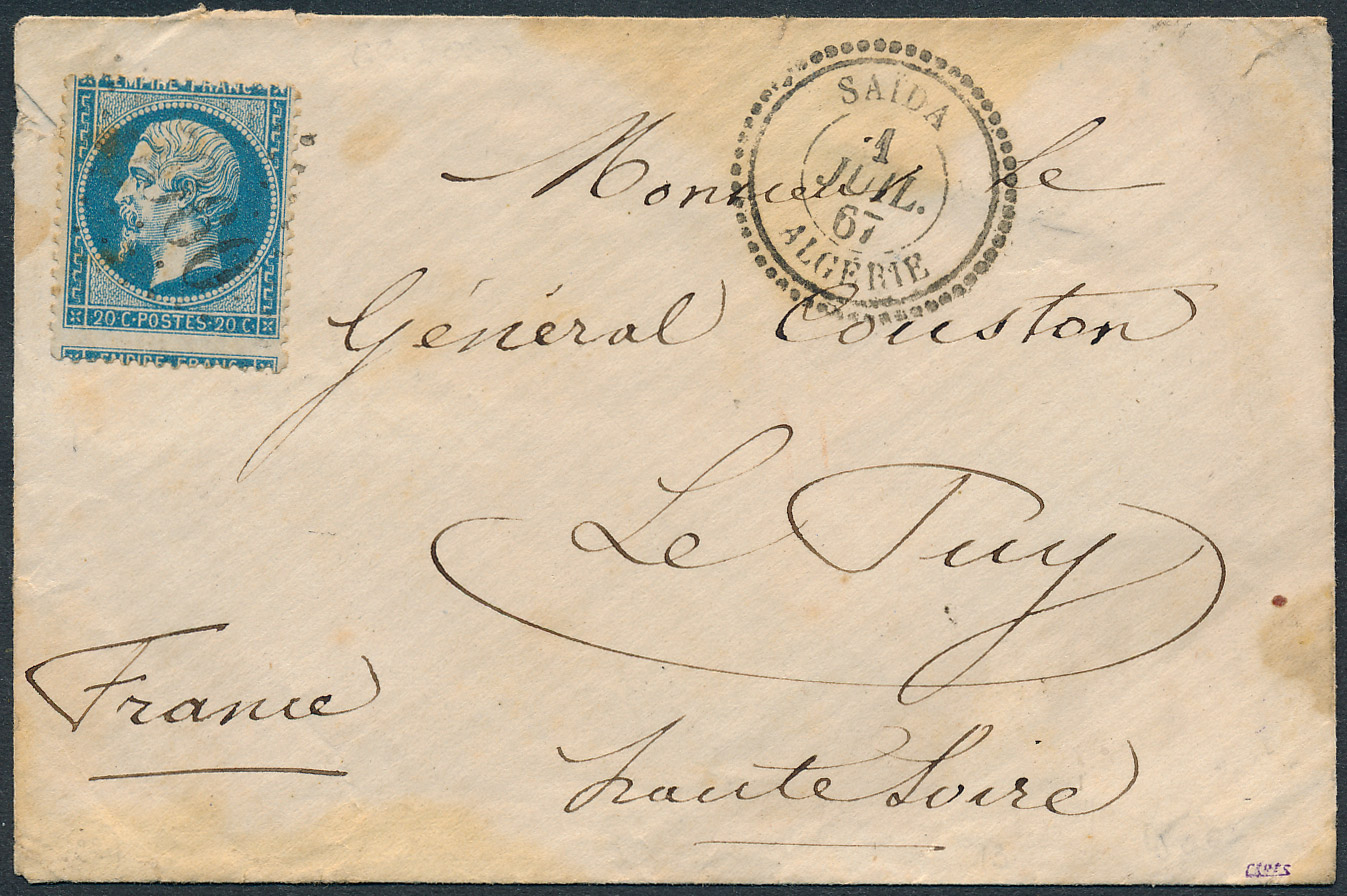 EMPIRE FRANC
20·C·POSTES·20 C
EMPIRE FRANC
SAÏDA
1
JUIL.
67
ALGÉRIE
Monsieur le
Général Couston
Le Puy
France
haute Loire